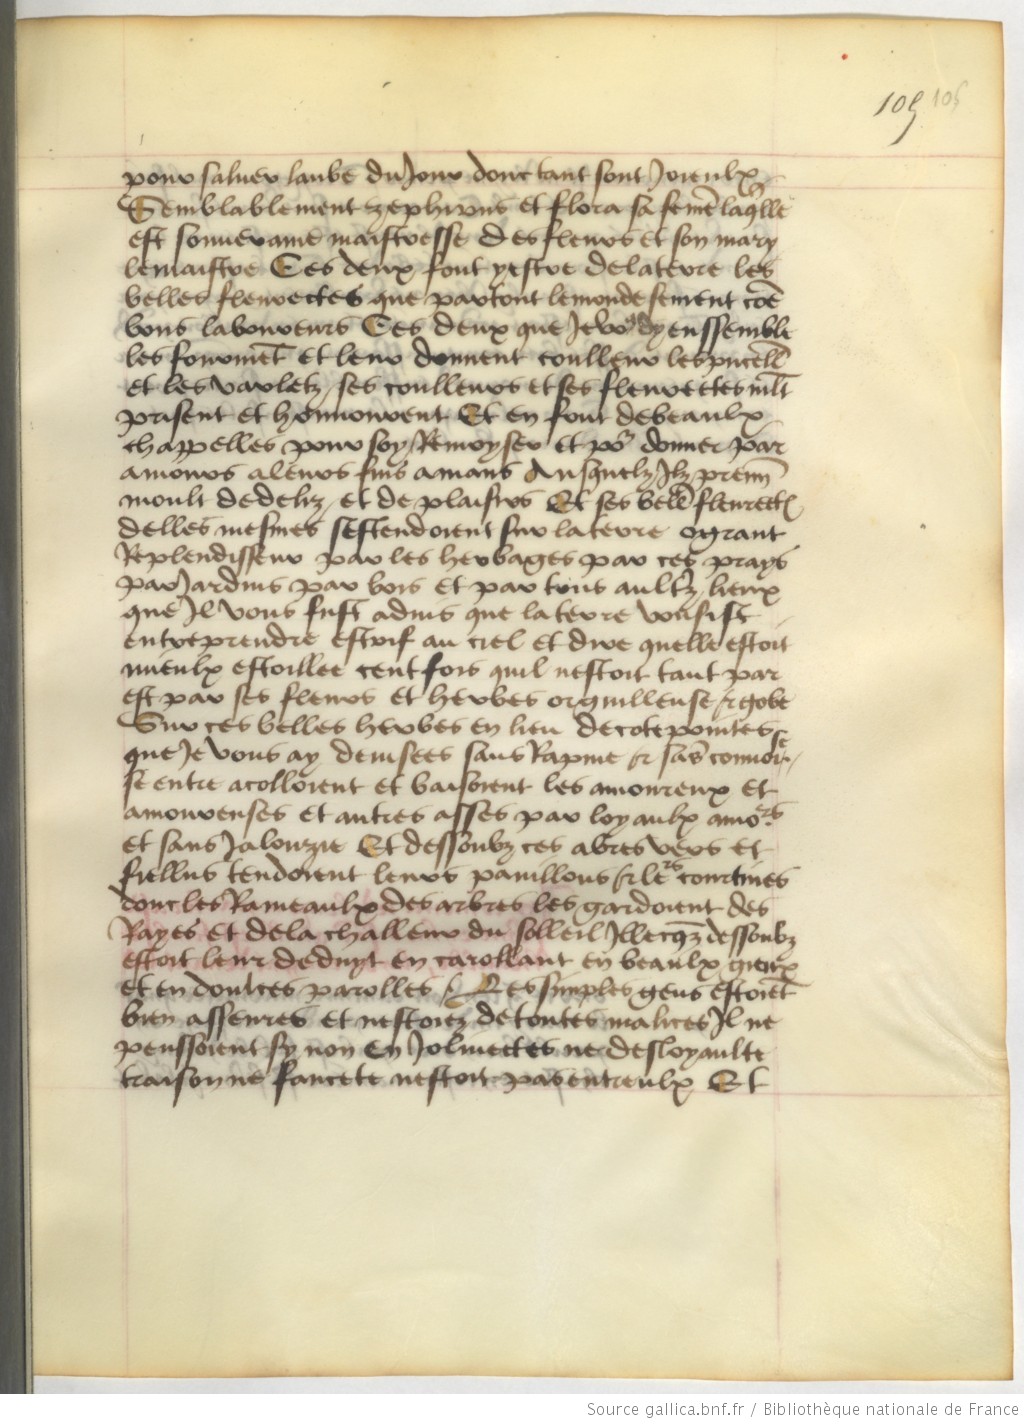 105 105
pour saluer laube du Jour dont tant sont Joieulx
Semblablement zephirus et flora sa fem̄e laq̄lle
est souueraine maistresse des fleurs et son mary
le maistre Ces deux font yestre de la terre les
belles fleurectes que partout le monde sement cōe
bons laboureurs Ces deux que Je vo9 dy enssemble
les formēt et leur donnent coulleur les pucell̄
et les varletz ses coulleurs et ses fleurectes mlt̄
prisent et honnourent Et en font de beaulx
chappelles pour soy Renuoyser et pōr donner par
amours a leurs fins amans Ausquelz Ilz prenn̄
moult de deliz et de plaisirs Et ses bell̄ fleurectes
delles mesmes sestendoient sur la terre o grant
Replendisseur par les herbages par ces prays
par Jardins par bois et par tous aultz̄ lieux
que Il vous fust aduis que la terre voulsist
entreprendre estrif au ciel et dire quelle estoit
mieulx estoillee cent fois quil nestoit tant par
est par ses fleurs et herbes orguilleuse & gobe
Sur ces belles herbes en lieu de cotepointes
que Je vous ay deuisees sans Rapine & sās conuoise
se entre acolloient et baisoient les amoureux et
amoureuses et autres asses par loyaulx amors
et sans Jalouzie Et dessoubz ces abres vers et
fiellus tendoient leurs pauillons & lers courtines
dont les Rameaulx des arbres les gardoient des
Rayes et de la challeur du solleil Illecqz dessoubz
estoit leur deduyt en carollant en beaulx gieux
et en doulces parolles / Ces simples gens estoiēt
bien asseures et nestoiēt de toutes malices Il ne
penssoient sy non en Joliuectes ne desloyaulte
traison ne faucete nestoit pas entreulx Et
Source gallica.bnf.fr / Bibliothèque nationale de France